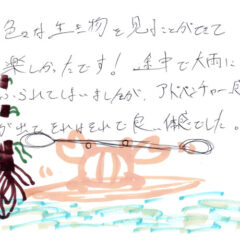 色々な生き物を見ることができて
楽しかったです！途中で大雨に
ふられてしまいましたが、アドベンチャー感
が出て、それはそれで良い体感でした。